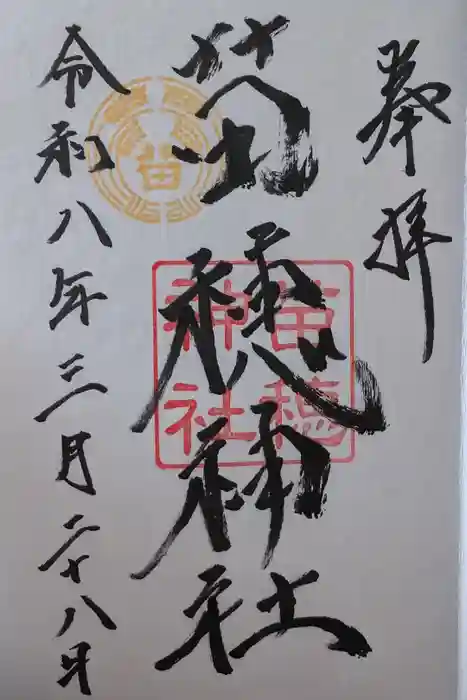 奉拝
苗穂神社
苗穂神社
苗
令和八年三月二十八日